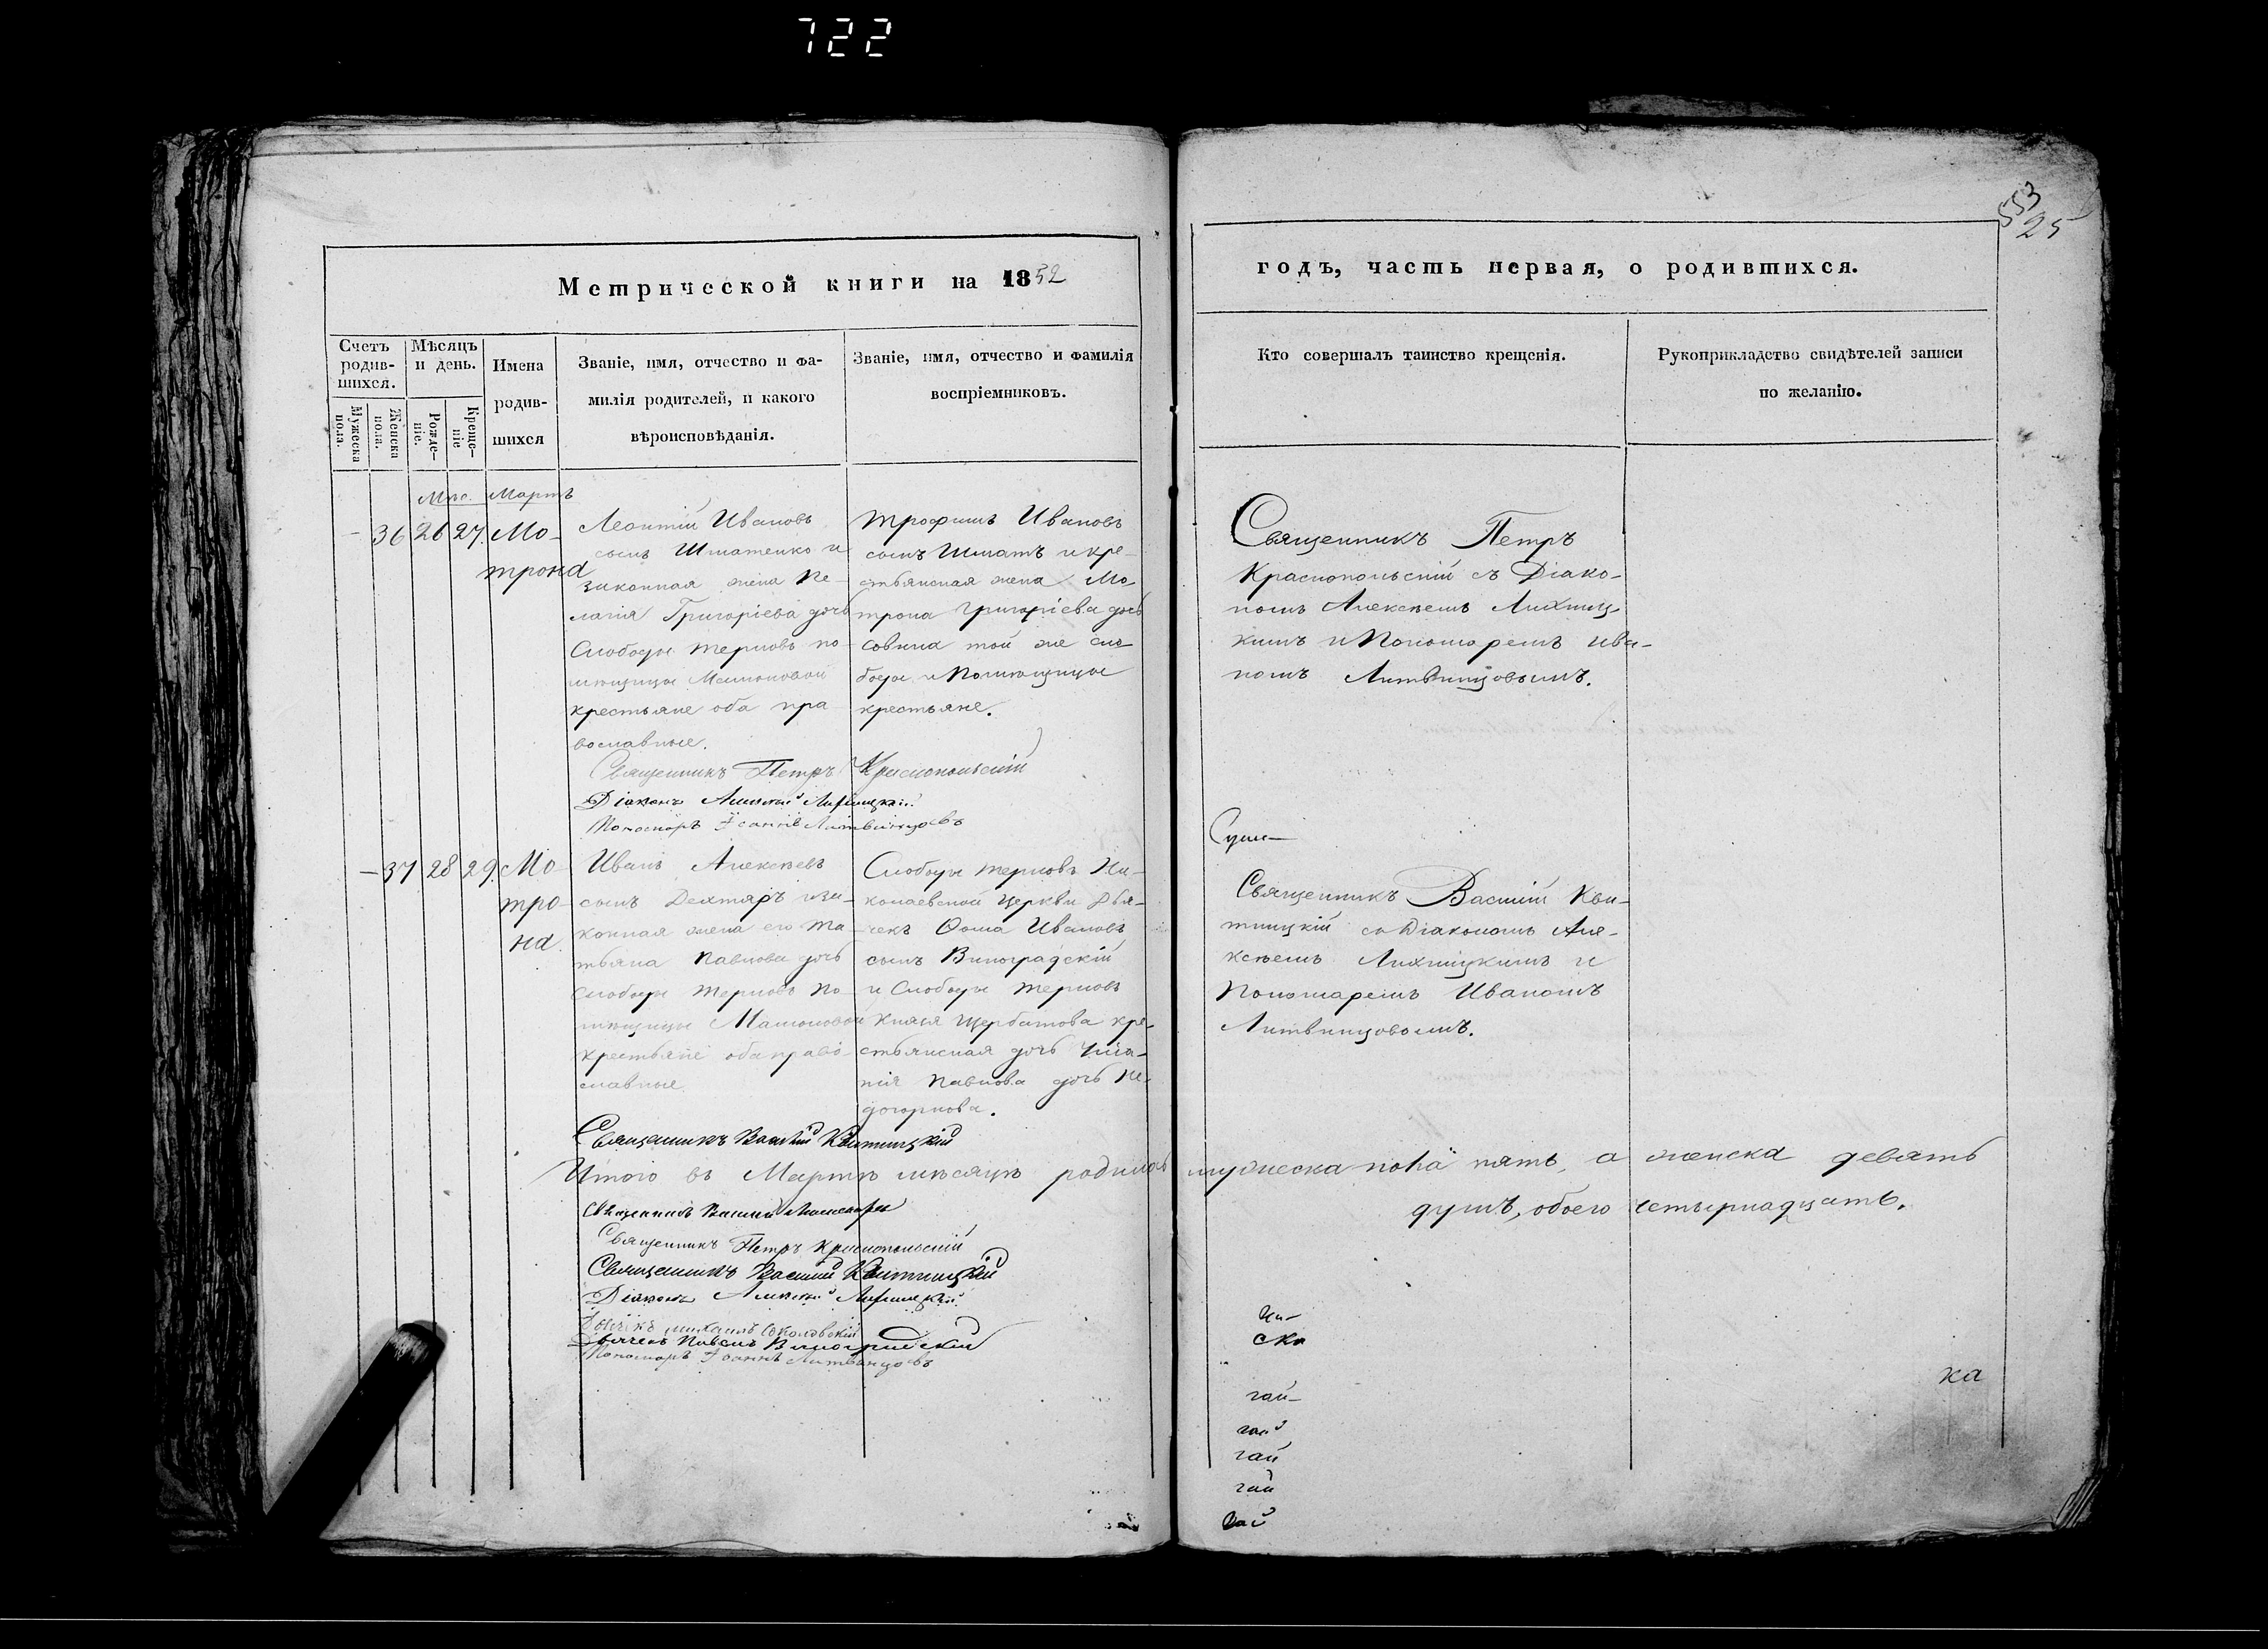 722
553
25
Метрической книги на 1852
годъ, часть первая, о родившихся.
Счетъ родив-шихся.
Мужеска пола.
Женска пола.
Мѣсяцъ и день.
Рожде-ніе.
Креще-ніе
Имена
родив-
шихся
Званіе, имя, отчество и фа-
милія родителей, и какого
вѣроисповѣданія.
Званіе, имя, отчество и фамилія
воспріемниковъ.
Кто совершалъ таинство крещенія.
Рукоприкладство свидѣтелей записи
по желанію.
Мартъ
- 36 26 27. Мо-
трона
Леонтій Ивановъ
сынъ Шматенко и
законная жена Пе-
лагія Григоріева дочь
Слободы Терновъ по-
мѣщицы
крестьяне оба пра
вославные.
Трофимъ Ивановъ
сынъ Шматъ и кре-
стьянская жена Мо-
трона Григоріева дочь
той же сло
боды и помѣщицы
крестьяне.
Священникъ Петръ
Краснопольскій съ Діако-
номъ Алексѣемъ Лихниц-
кимъ и Пономаремъ Ива-
номъ Литвинцовымъ.
Священникъ Петръ Краснопольскій
Діаконъ Алексѣй Лихницкій
Пономарь Іоаннъ Литвинцовъ
- 37 28 29. Мо-
тро-
на
Иванъ Алексѣевъ
сынъ Дехтяръ иза-
конная жена его Та-
тьяна Павлова дочь
Слободы Терновъ по-
мѣщицы
крестьяне оба право-
славные.
Слободы Терновъ Ни-
колаевской Церкви Дья-
чекъ Ѳома Ивановъ
сынъ Виноградскій
и Слободы Терновъ
Князя Щербатова кре-
стьянская дочь Улья-
нія Павлова дочь
Священникъ Василій Кви-
тницкій со Діакономъ Але-
ксѣемъ Лихницкимъ и
Пономаремъ Иваномъ
Литвинцовомъ.
Священникъ Василій Квитницкій
Итого въ Мартѣ мѣсяцѣ родилось мужеска пола пять, а женска девять
душъ, обоего четырнадцать.
Священникъ Василій
Священникъ Петръ Краснопольскій
Священникъ Василій Квитницкій
Діаконъ Алексѣй Лихницкій
Дьячекъ Михаилъ Соколовскій
Дьячекъ Павелъ Виноградскій
Пономарь Іоаннъ Литвинцовъ
ско
ка
гай-
гай
гай
гай